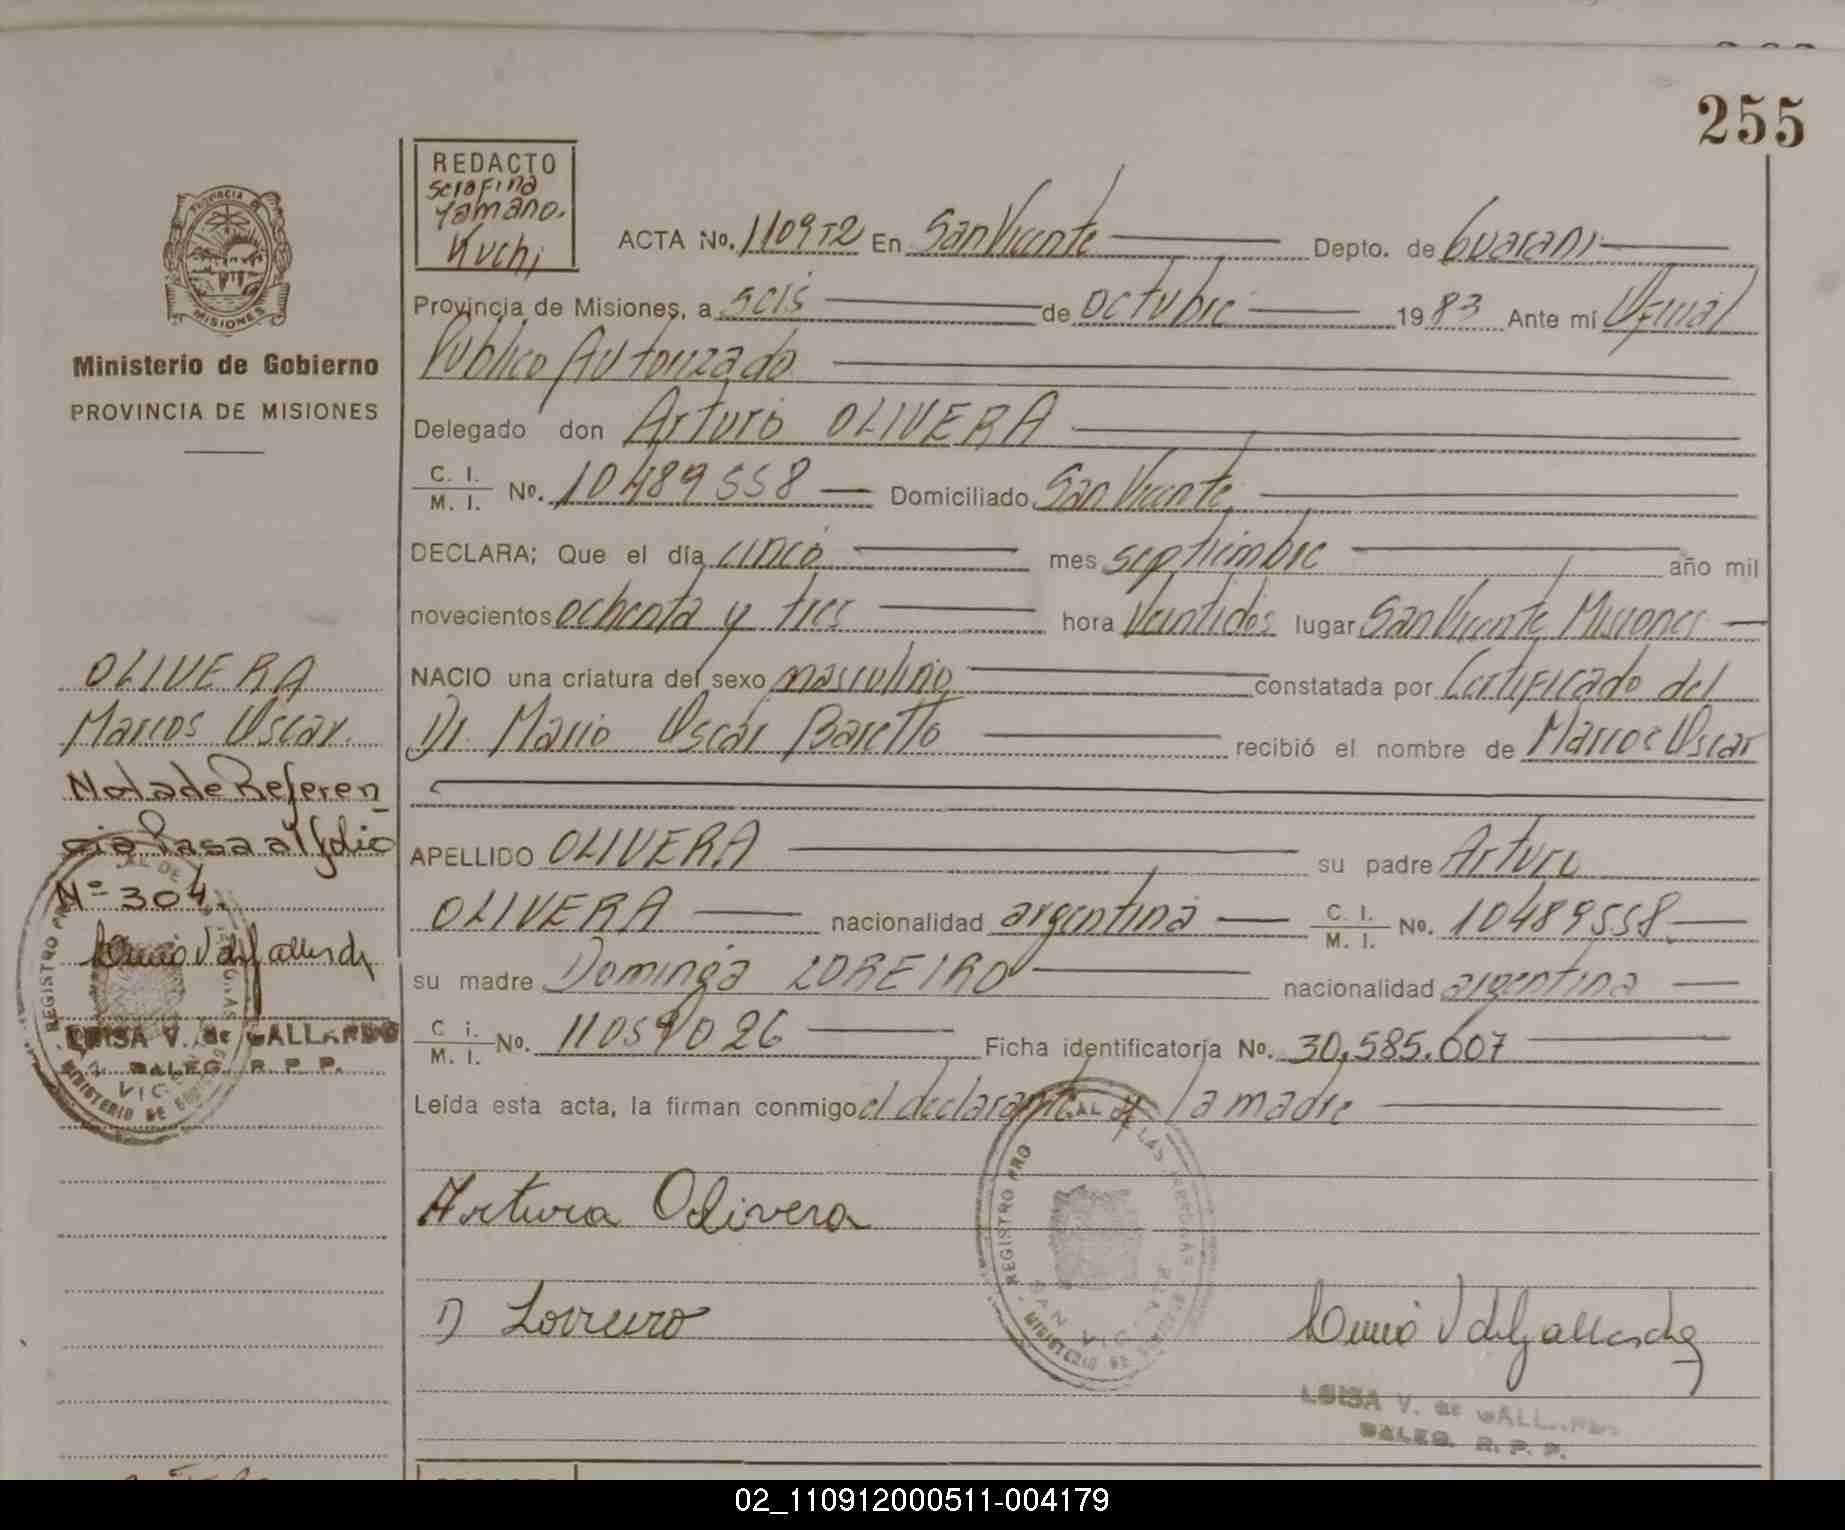 255
PROVINCIA DE
MISIONES
Ministerio de Gobierno
PROVINCIA DE MISIONES
REDACTO
Serafina
Yamano.
Kuchi
ACTA No. 1109T2 En San Vicente Depto. de Guarani
Provincia de Misiones, a seis de octubre 1983 Ante mi Oficial
Publico Autorizado
Delegado don Arturo OLIVERA
C. I. / M. I. No. 10489558 Domiciliado San Vicente
DECLARA; Que el día cinco mes septiembre año mil
novecientos ochenta y tres hora veintidos lugar San Vicente Misiones
NACIO una criatura del sexo masculino constatada por Certificado del
Dr. Mario Oscar Baretto recibió el nombre de Marcos Oscar
APELLIDO OLIVERA su padre Arturo
OLIVERA nacionalidad argentina C. I. / M. I. No. 10489558
su madre Dominga LOREIRO nacionalidad argentina
C i. / M. I. No. 11059026 Ficha identificatoria No. 30.585.607
Leída esta acta, la firman conmigo el declarante y la madre
Arturo Olivera
D Lorreiro
LUISA V. de GALLARDO
DALEG. R. P. P.
REGISTRO PRO
SAN VIC
MINISTERIO DE
OLIVERA
Marcos Oscar.
Nota de Referen
cia Pasa al folio
Nº 304.
LUISA V. de GALLARDO
DALEG. R. P. P.
REGISTRO
VIC
MINISTERIO DE
02_110912000511-004179